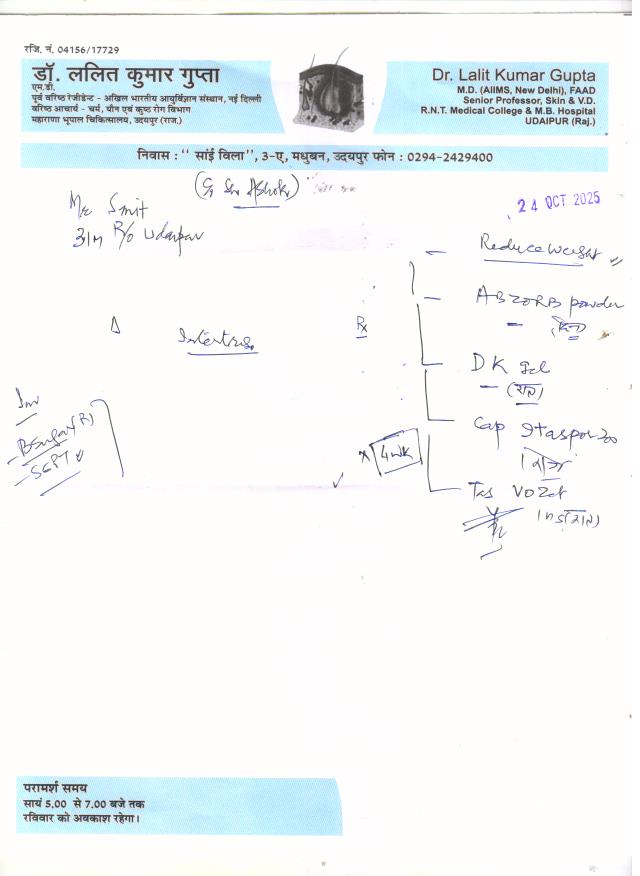 रजि. नं. 04156/17729
डॉ. ललित कुमार गुप्ता
एम.डी.
पूर्व वरिष्ठ रेजीडेन्ट - अखिल भारतीय आयुर्विज्ञान संस्थान, नई दिल्ली
वरिष्ठ आचार्य - चर्म, यौन एवं कुष्ठ रोग विभाग
महाराणा भूपाल चिकित्सालय, उदयपुर (राज.)
Dr. Lalit Kumar Gupta
M.D. (AIIMS, New Delhi), FAAD
Senior Professor, Skin & V.D.
R.N.T. Medical College & M.B. Hospital
UDAIPUR (Raj.)
निवास : “ सांई विला”, 3-ए, मधुबन, उदयपुर फोन : 0294-2429400
24 OCT 2025
Smit
R/o Udaipur
Reduce weight
ABZORB powder
Δ
Rx
DK gel
(रात)
Inv
B Sugar (R)
SGPT
Cap
x 4wk
Tab
परामर्श समय
सायं 5.00 से 7.00 बजे तक
रविवार को अवकाश रहेगा।